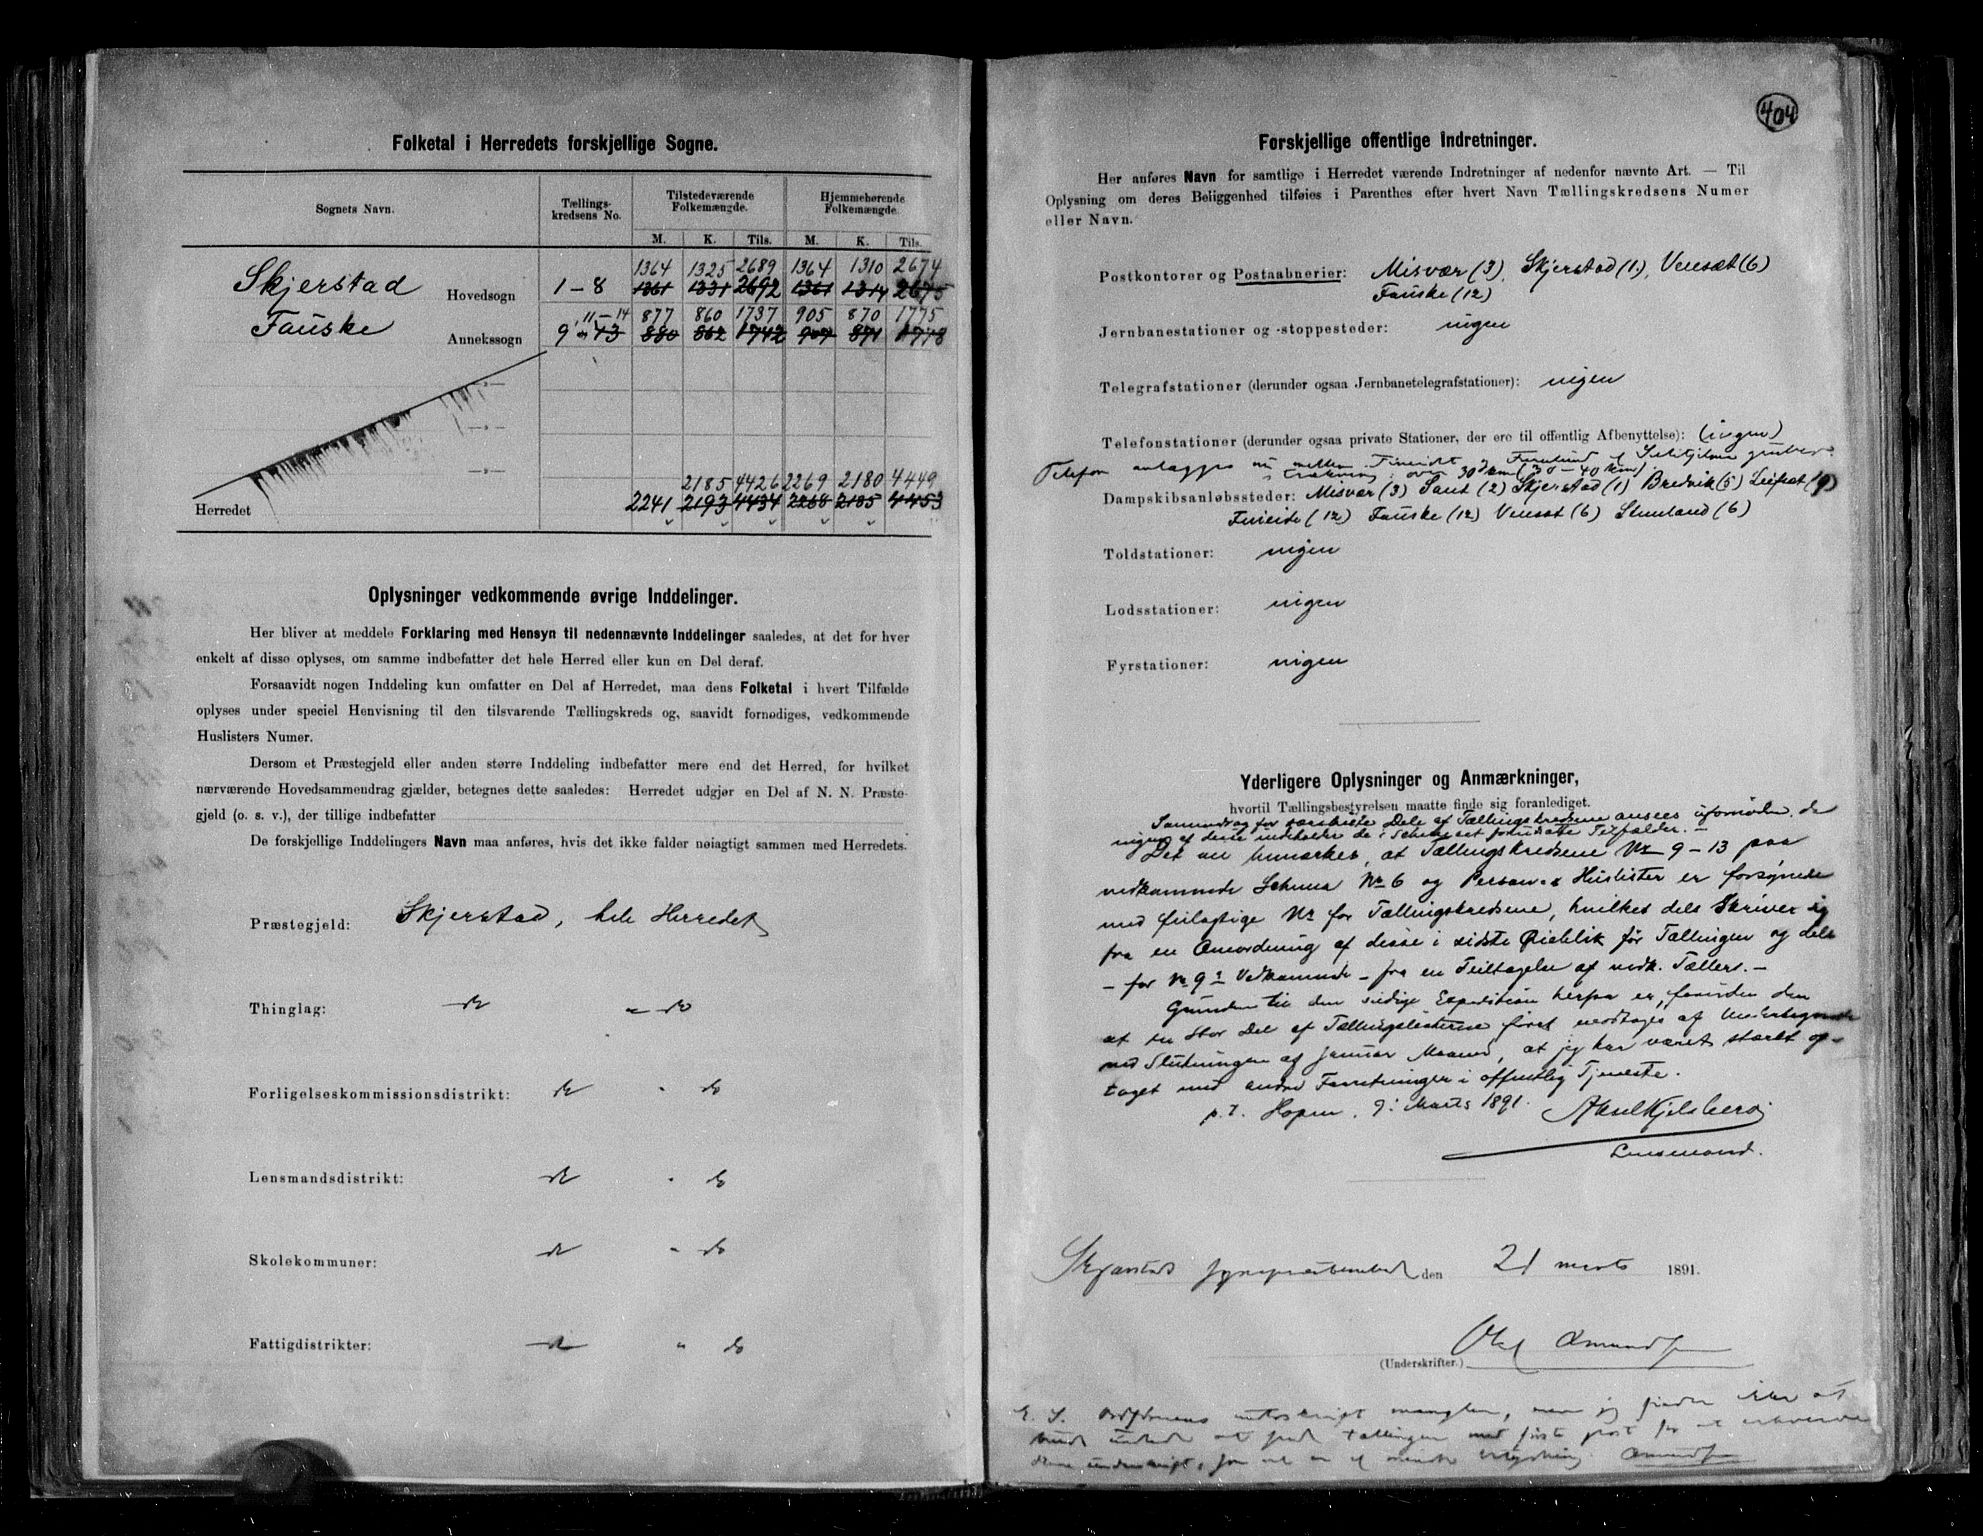 Folketal i Herredets forskjellige Sogne.
Sognets Navn.
Tællings-
kredsens No.
Tilstedeværende
Folkemængde.
Hjemmehørende
Folkemængde.
M. K. Tils. M. K. Tils.
1364 1325 2689 1364 1310 2674
Skjerstad Hovedsogn 1-8 1361 1331 2692 1361 1314 2675
11-14 877 860 1737 905 870 1775
Fauske Annekssogn 9-13 880 862 1742 907 871 1778
2185 4426 2269 2180 4449
Herredet 2241 2193 4434 2268 2185 4453
Oplysninger vedkommende øvrige Inddelinger.
Her bliver at meddele Forklaring med Hensyn til nedennævnte Inddelinger saaledes, at det for hver
enkelt af disse oplyses, om samme indbefatter det hele Herred eller kun en Del deraf.
Forsaavidt nogen Inddeling kun omfatter en Del af Herredet, maa dens Folketal i hvert Tilfælde
oplyses under speciel Henvisning til den tilsvarende Tællingskreds og, saavidt fornødiges, vedkommende
Huslisters Numer.
Dersom et Præstegjeld eller anden større Inddeling indbefatter mere end det Herred, for hvilket
nærværende Hovedsammendrag gjælder, betegnes dette saaledes: Herredet udgjør en Del af N. N. Præste-
gjeld (o. s. v.), der tillige indbefatter
De forskjellige Inddelingers Navn maa anføres, hvis det ikke falder nøiagtigt sammen med Herredets.
Præstegjeld: Skjerstad, hele Herredet
Thinglag: do " do
Forligelseskommissionsdistrikt: do " do
Lensmandsdistrikt: do " do
Skolekommuner: do " do
Fattigdistrikter: do " do
404
Forskjellige offentlige Indretninger.
Her anføres Navn for samtlige i Herredet værende Indretninger af nedenfor nævnte Art. — Til
Oplysning om deres Beliggenhed tilføies i Parenthes efter hvert Navn Tællingskredsens Numer
eller Navn.
Postkontorer og Postaabnerier: Misvær (3), Skjerstad (1), Venset (6)
Fauske (12)
Jernbanestationer og -stoppesteder: ingen
Telegrafstationer (derunder ogsaa Jernbanetelegrafstationer): ingen
Telefonstationer (derunder ogsaa private Stationer, der ere til offentlig Afbenyttelse): (ingen)
Telefon anlægges nu mellem Fineidet og Furulund Sulitjelma gruber
over 30 km (30-40 km)
Dampskibsanløbssteder: Misvær (3) Sant (2) Skjerstad (1) Bredvik (5) Leifset (9)
Fineide (12) Fauske (12) Venset (6) Stemland (6)
Toldstationer: ingen
Lodsstationer: ingen
Fyrstationer: ingen
Yderligere Oplysninger og Anmærkninger,
hvortil Tællingsbestyrelsen maatte finde sig foranlediget.
Sammendrag for særskilte Dele af Tællingskredsene ansees ufornøden, da
ingen af disse indeholder de i Schemaet forudsatte Tilfælder. —
Det bemærkes, at Tællingskredsene Nr 9-13 paa
vedkommende Schema Nr 6 og Person- & Huslister er forsynede
med feilagtige Nr for Tællingskredsene, hvilket dels skriver sig
fra en Omordning af disse i sidste Øieblik før Tællingen og dels
- for Nr 9s Vedkommende - fra en Feiltagelse af vedk. Tællers. —
Grunden til den sildige Expedition herfra er, foruden den
at en stor Del af Tællingslisterne først modtoges af Undertegnede
ved Slutningen af Januar Maaned, at jeg har været stærkt op-
taget med andre Forretninger i offentlig Tjeneste.
p. t. Hopen, 9. Marts 1891. Axel Kjelsberg
Lensmand.
Skjerstad den 21 marts 1891.
(Underskrifter.) Olaf Amundsen
E. S. Ordførerens underskrift mangler, men jeg finder ikke at
burde undlade at sende tællingen med første post for at erhverve
denne underskrift, Amundsen